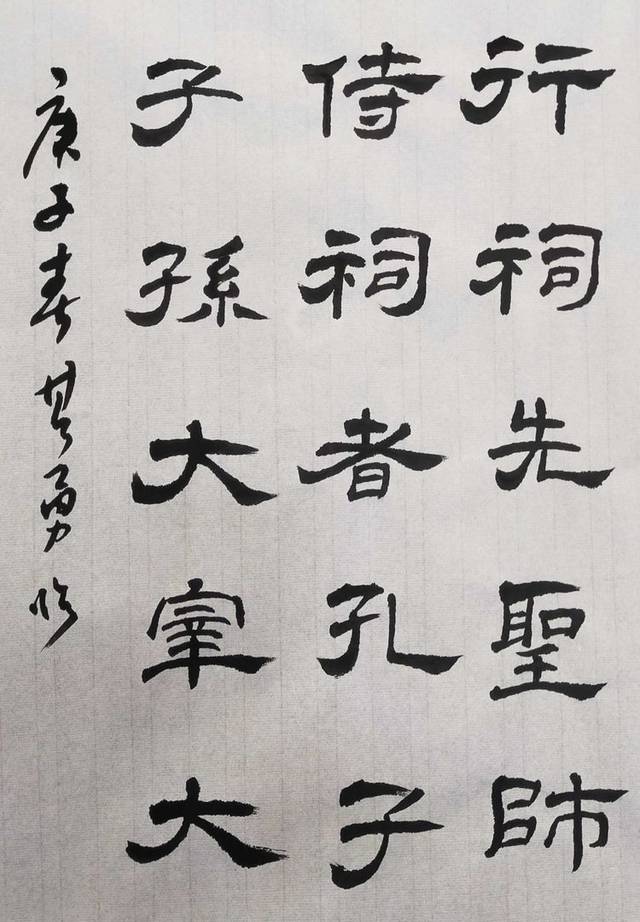 行祠先聖師
侍祠者孔子
子孫大宰大
庚子春 勇临